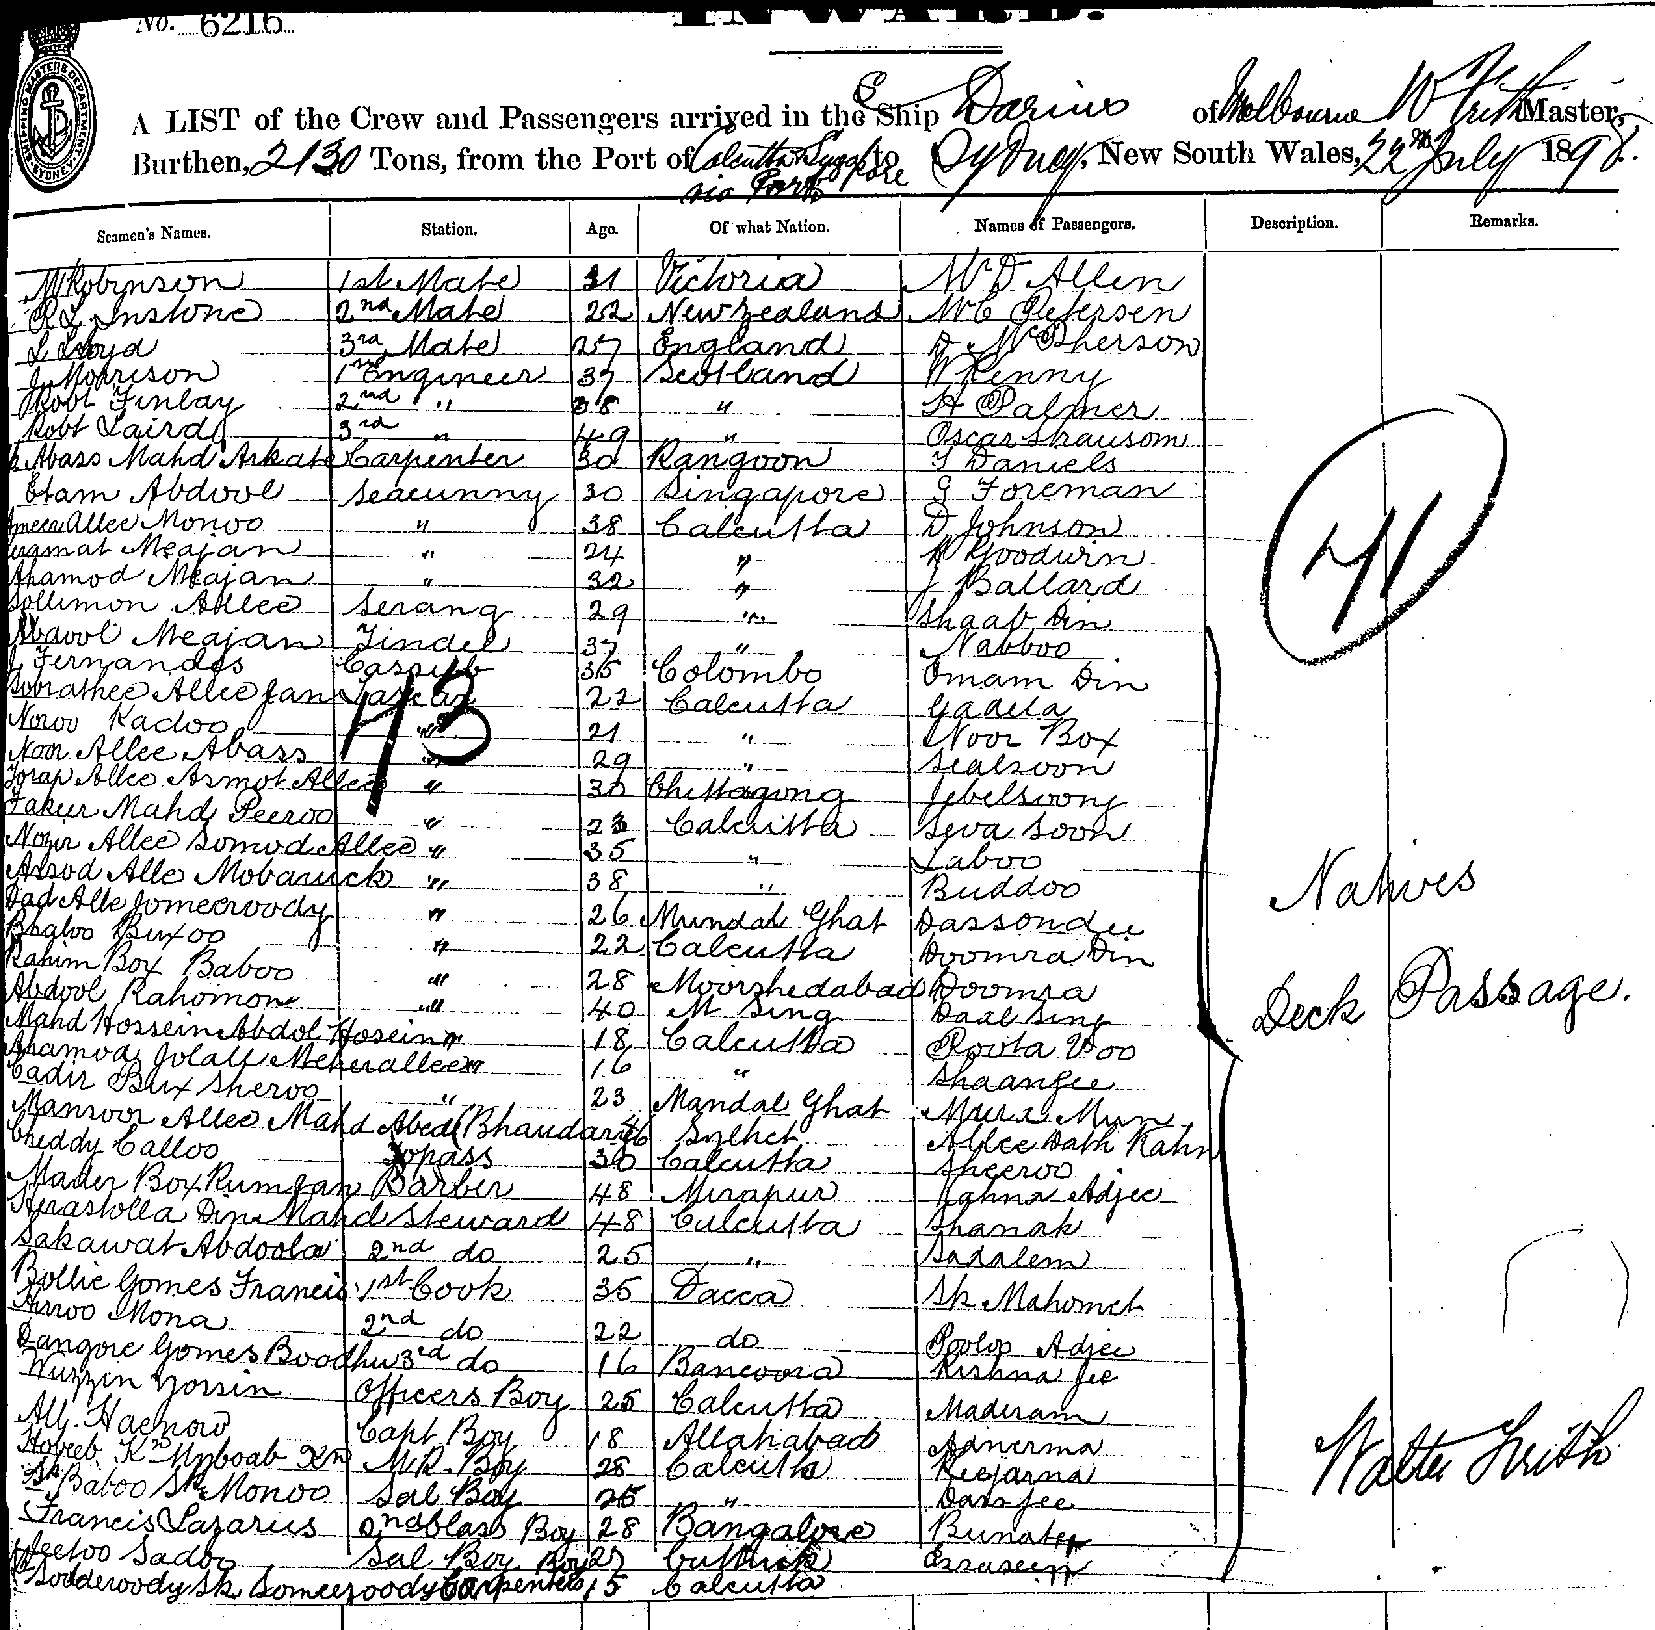 No. 6216
INWARD.
A LIST of the Crew and Passengers arrived in the S Ship Darius of Melbourne W Frith Master,
Burthen, 2130 Tons, from the Port of Calcutta Singapore via Ports to Sydney, New South Wales, 22nd July 1898.
Seamen's Names. Station. Age. Of what Nation. Names of Passengers. Description. Remarks.
M Robinson 1st Mate 31 Victoria Mr D Allen
R L Instone 2nd Mate 22 New Zealand Mr C Petersen
L Lloyd 3rd Mate 27 England D McPherson
J Morrison 1st Engineer 37 Scotland W Kenny
Robt Finlay 2nd " 38 " A Palmer
Robt Laird 3rd " 49 " Oscar
Abass Mahd Arkate Carpenter 30 Rangoon T Daniels
Etam Abdool Seacunny 30 Singapore G Foreman
Allee Monoo " 38 Calcutta D Johnson
Meajan " 24 " R Goodwin
Ahamod Meajan " 32 " J Ballard
Sollimon Allee Serang 29 " Shaab Din
Abdool Meajan Tindel 37 " Nabboo
J Fernandes Cassubb 35 Colombo Omam Din
Allee Jan Lascar 22 Calcutta
43
Noroo Kadoo " 21 " Noor Box
Noor Allee Abass " 29 "
Torap Allee Asmot Allee " 30 Chittagong
Fakeer Mahd Peeroo " 23 Calcutta Seva Soon
Nozir Allee Somod Allee " 35 " Laboo
Assod Alle Mobaruck " 38 " Buddoo
Dad Alle Jomeeroody " 26 Mundal Ghat Dassondee
Bhaloo Buxoo " 22 Calcutta Doomra Din
Rahim Box Baboo " 28 Moorshedabad Doomra
Abdool Rahomon " 40 M Sing Daal Sing
Mahd Hossein Abdol Hosein " 18 Calcutta
Ahamod Jolall Meherallee " 16 "
Cadir Bux Sheroo " 23 Mandal Ghat
Mansoor Allee Mahd Abed (Bhandary 46 Sylhet Allee Dath Kahn
Cheddy Calloo Topass 30 Calcutta Sheeroo
Mader Box Rumjan Barber 48 Mirapur Adjee
Herastolla Din Mahd Steward 48 Calcutta Shanak
Sakawat Abdoola 2nd do 25 " Sadalem
Bollie Gomes Francis 1st Cook 35 Dacca Sk Mahomet
Hirroo Mona 2nd do 22 do Adjee
Dangore Gomes Boodhu 3rd do 16 Bancoora Kishna Jee
Wuzzin Yossin Officers Boy 25 Calcutta Maderam
Capt Boy 18 Allahabad
Hobeeb Kn M.R. Boy 28 Calcutta
Sk Baboo Sk Monoo Sal Boy 25 "
Francis Lazarius 2nd Class Boy 28 Bangalore
Sadoo Sal Boy 27 Cuttack
Sk Carpenters Boy 15 Calcutta
41
Natives
Deck Passage.
Walter Frith